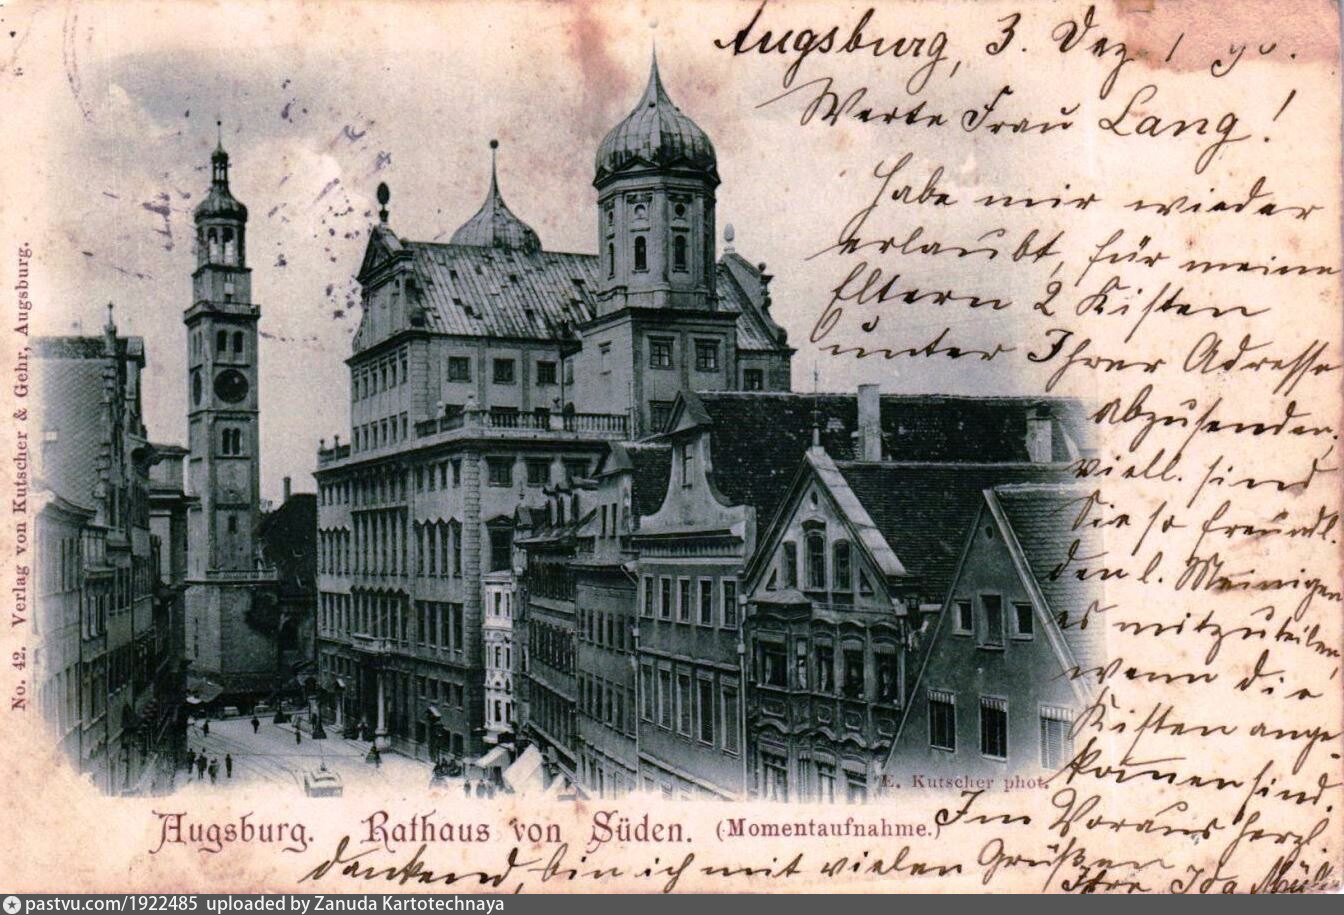 Augsburg, 3. Dez.
Werte Frau Lang!
Habe mir wieder
erlaubt, für meine
Eltern 2 Kisten
unter Ihrer Adresse
abzusenden,
viell. sind
Sie so freundl.
den l. Meinigen
es mitzuteilen,
wenn die
Kisten ange
kommen sind.
Im Voraus herzl.
dankend, bin ich mit vielen Grüßen
Ihre Ida
E. Kutscher phot.
Augsburg. Rathaus von Süden. (Momentaufnahme.)
No. 42. Verlag von Kutscher & Gehr, Augsburg.
pastvu.com/1922485 uploaded by Zanuda Kartotechnaya